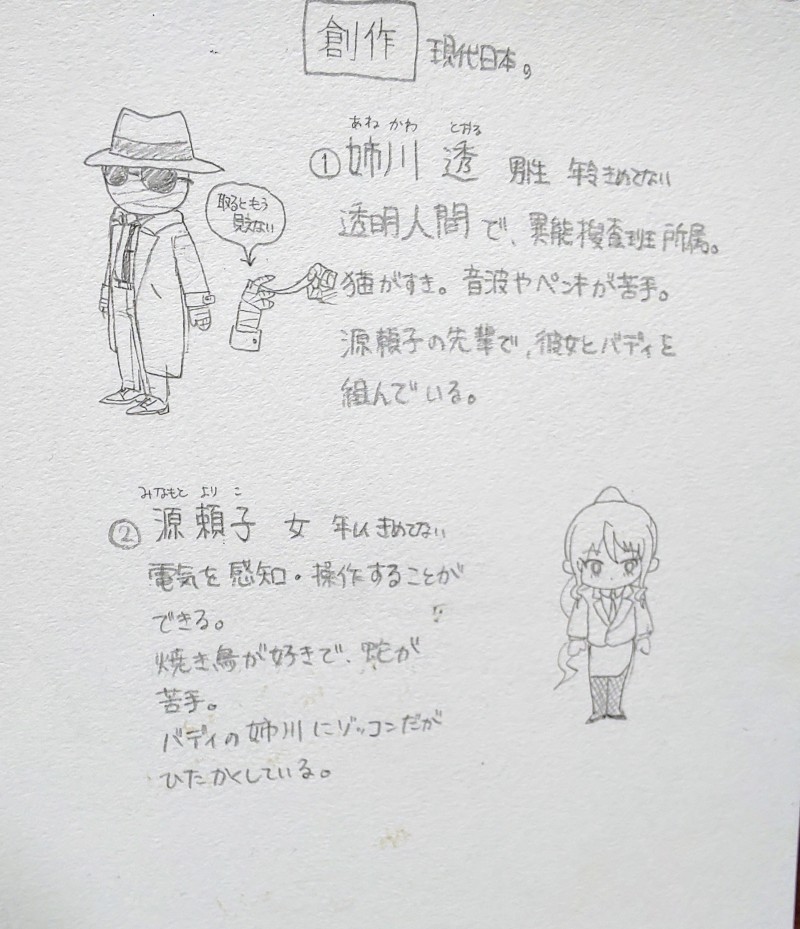 創作 現代日本。
あねかわ とおる
①姉川 透 男性 年令きめてない
取るともう
見えない
透明人間で、異能捜査班所属。
猫がすき。音波やペンキが苦手。
源頼子の先輩で、彼女とバディを
組んでいる。
みなもと よりこ
②源頼子 女 年れいきめてない
電気を感知・操作することが
できる。
焼き鳥が好きで、蛇が
苦手。
バディの姉川にゾッコンだが
ひたかくしている。